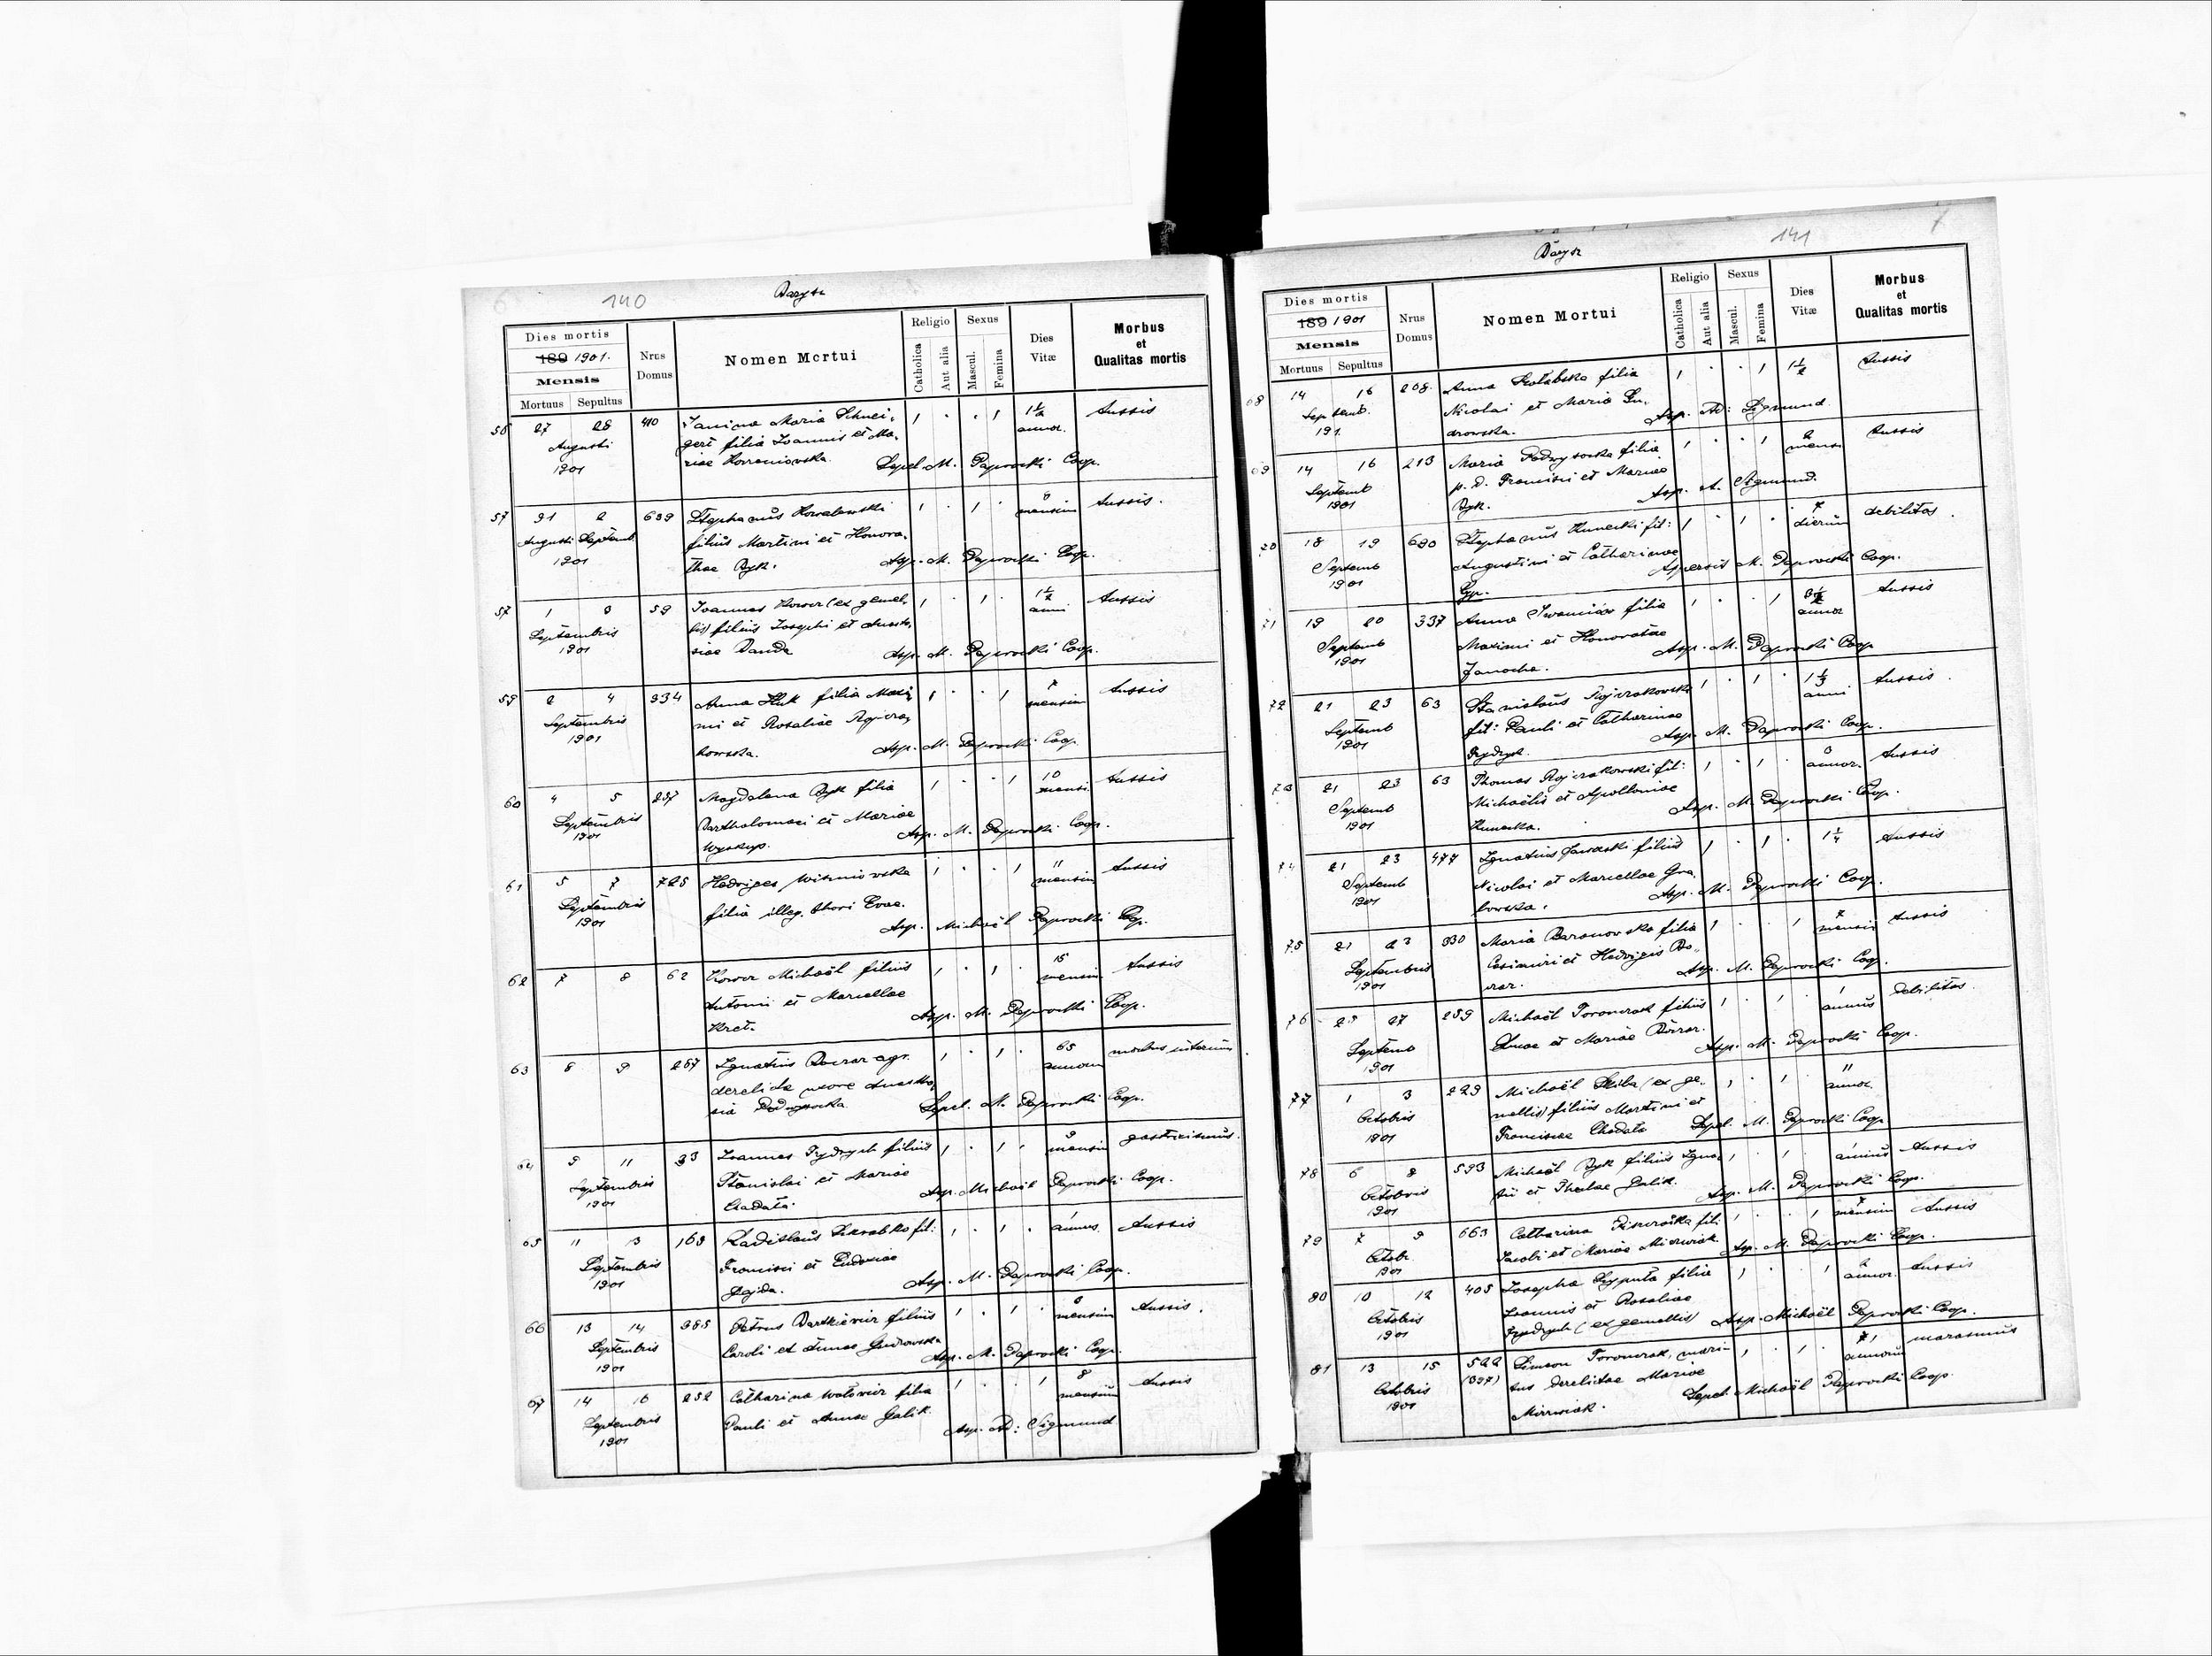 140
Barysz
Dies mortis
189 1901.
Mensis
Mortuus Sepultus
Nrus Domus
Nomen Mortui
Religio
Catholica
Aut alia
Sexus
Mascul.
Femina
Dies Vitæ
Morbus
et
Qualitas mortis
56 27 28 410 Janina Maria Schnei- 1 1½ tussis
Augusti gert filia Joannis et Ma- annor.
1901 riae Sepel. M. Paprocki Coop.
57 31 2 639 Stephanus Kowalewski 1 1 tussis.
Augusti Septemb filius Martini et Honora- mensium
1901 thae Byk. Asp. M. Paprocki Coop.
57 1 3 59 Joannes Kower (ex gemel- 1 1 1½ tussis
Septembris lis) filius Josephi et Anasta- anni
1901 siae Danda Asp. M. Paprocki Coop.
59 2 4 334 Anna Huk filia Maxi- 1 1 7 tussis
Septembris mi et Rosaliae Rojcza- mensium
1901 kowska. Asp. M. Paprocki Coop.
60 4 5 237 Magdalena Byk filia 1 1 10 tussis
Septembris Bartholomaei et Mariae mensi
1901 Wyskup. Asp. M. Paprocki Coop.
61 5 7 725 Hedviges Wiszniowska 1 1 11 tussis
Septembris filia illeg. thori Evae. mensium
1901 Asp. Michaël Paprocki Coop.
62 7 8 62 Kower Michaël filius 1 1 15 tussis
Antonii et Marcellae mensium
Kret. Asp. M. Paprocki Coop.
63 8 9 267 Ignatius agr. 1 1 65
derelicta uxore Anasta- annorum
sia Podwysocka Sepel. M. Paprocki Coop.
64 9 11 33 Joannes Frydrych filius 1 1 9 gastricismus.
Septembris Stanislai et Mariae mensium
1901 Asp. Michaël Paprocki Coop.
65 11 13 163 Ladislaus Skrabko fil: 1 1 1 tussis
Septembris Francisci et Eudoxiae annus
1901 Gajda. Asp. M. Paprocki Coop.
66 13 14 385 Petrus Bartkiewicz filius 1 1 8 tussis.
Septembris Caroli et Annae mensium
1901 Asp. M. Paprocki Coop.
67 14 16 252 Catharina Wołowicz filia 1 1 8 tussis
Septembris Pauli et Annae Galik. mensium
1901 Asp. Ad: Sigmund
141
Barysz
Dies mortis
189 1901
Mensis
Mortuus Sepultus
Nrus Domus
Nomen Mortui
Religio
Catholica
Aut alia
Sexus
Mascul.
Femina
Dies Vitæ
Morbus
et
Qualitas mortis
68 14 16 208. Anna filia 1 1 1½ tussis
Septemb. Nicolai et Maria
191. Asp. Ad: Sigmund.
69 14 16 213 Maria Podwysocka filia 1 1 2 tussis
Septemb p. d. Francisci et Mariae mensi
1901 Byk. Asp. A. Sigmund.
18 19 690 Stephanus Kunecki fil: 1 1 7 debilitas.
Septemb Augustini et Catharinae dierum
1901 Aspersit M. Paprocki Coop.
71 19 20 337 Anna Iwanciów filia 1 1 tussis
Septemb Maximi et Honoratae annor
1901 Janocha. Asp. M. Paprocki Coop
72 21 23 63 Stanislaus Rojczakowski 1 1 tussis.
Septemb fil: Pauli et Catharinae anni
1901 Frydrych. Asp. M. Paprocki Coop.
73 21 23 63 Thomas Rojczakowski fil: 1 1 3 tussis
Septemb Michaëlis et Apolloniae annor.
1901 Kunecka. Asp. M. Paprocki Coop.
74 21 23 477 Ignatius filius 1 1 1¼ tussis
Septemb Nicolai et Marcellae Gra-
1901 bowska. Asp. M. Paprocki Coop.
75 21 23 330 Maria Baranowska filia 1 1 7 tussis
Septembris Casimiri et Hedvigis Bo- mensium
1901 Asp. M. Paprocki Coop
76 25 27 259 Michaël Toronczak filius 1 1 1 debilitas.
Septemb et Mariae annus
1901 Asp. M. Paprocki Coop.
77 1 3 229 Michaël Skiba (ex ge- 1 1 11
Octobris mellis) filius Martini et annor.
1901 Franciscae Chadala Sepel. M. Paprocki Coop
78 6 8 593 Michaël Byk filius Igna- 1 1 1 tussis
Octobris tii et Theclae Galik. annus
1901 Asp. M. Paprocki Coop.
79 7 9 663 Catharina fil: 1 1 7 tussis
Octobr. Jacobi et Mariae mensium
1901 Asp. M. Paprocki Coop.
80 10 12 405 Josepha filia 1 1 2 tussis
Octobris Joannis et Rosaliae annor.
1901 Frydrych (ex gemellis) Asp. Michaël Paprocki Coop.
81 13 15 522 Simeon Toronczak, mari- 1 1 71 marasmus
Octobris (397) tus derelictae Mariae annorum
1901 Sepel. Michaël Paprocki Coop.